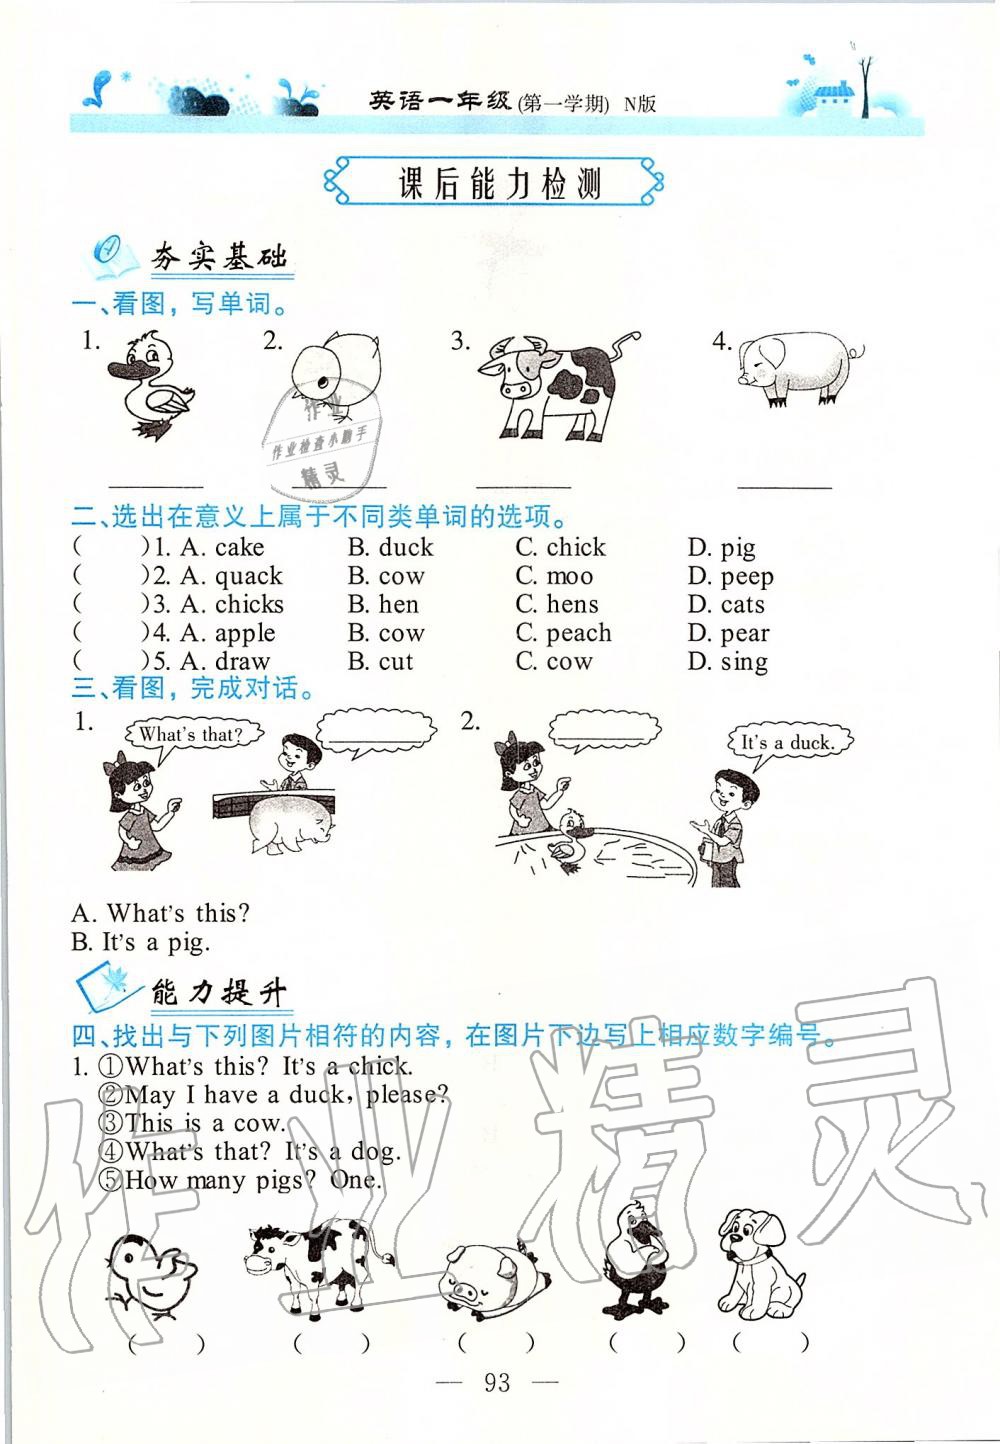 英语一年级(第一学期) N版
课后能力检测
夯实基础
一、看图，写单词。
1. 2. 3. 4.
作业
作业检查小助手
精灵
二、选出在意义上属于不同类单词的选项。
( )1. A. cake B. duck C. chick D. pig
( )2. A. quack B. cow C. moo D. peep
( )3. A. chicks B. hen C. hens D. cats
( )4. A. apple B. cow C. peach D. pear
( )5. A. draw B. cut C. cow D. sing
三、看图，完成对话。
1. What's that? 2. It's a duck.
A. What's this?
B. It's a pig.
能力提升
四、找出与下列图片相符的内容，在图片下边写上相应数字编号。
1. ①What's this? It's a chick.
②May I have a duck, please?
③This is a cow.
④What's that? It's a dog.
⑤How many pigs? One.
作业精灵
( ) ( ) ( ) ( ) ( )
— 93 —